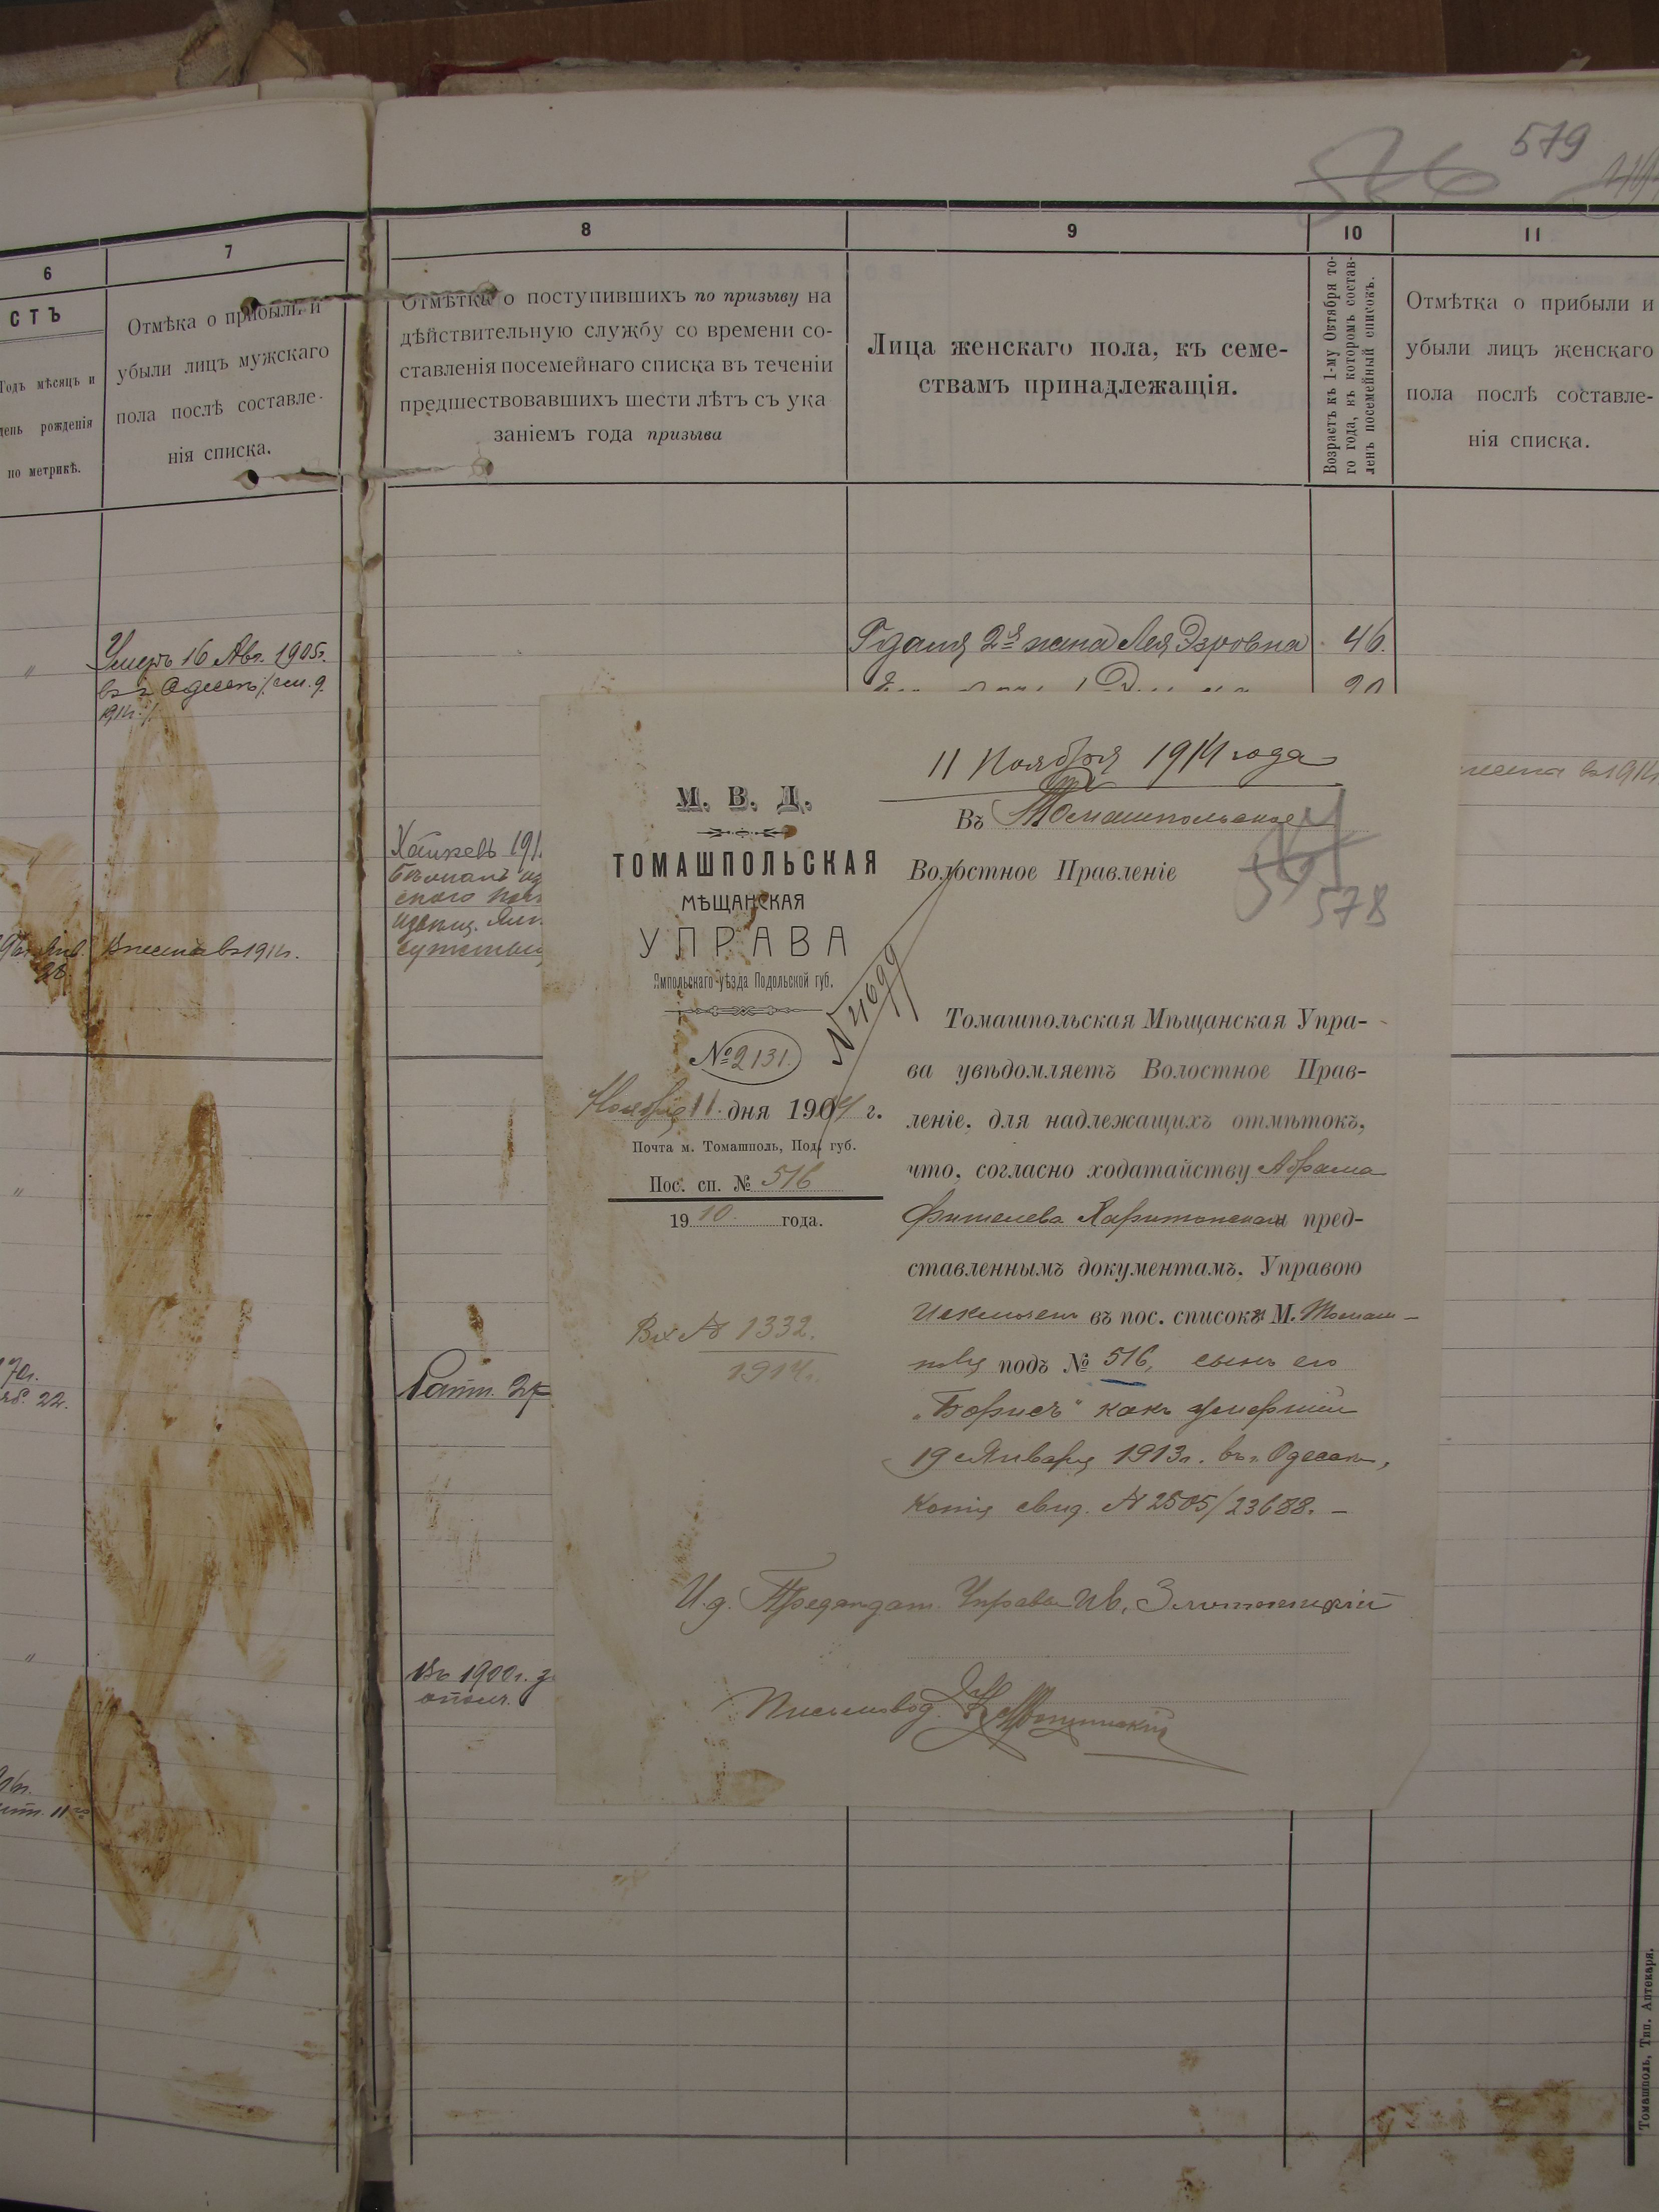 579
566
6
7
8
9
10
11
СТЪ
Годъ мѣсяцъ и
день рожденія
по метрикѣ.
Отмѣка о прибыли и
убыли лицъ мужскаго
пола послѣ составле-
нія списка.
Отмѣтка о поступившихъ по призыву на
дѣйствительную службу со времени со-
ставленія посемейнаго списка въ теченіи
предшествовавшихъ шести лѣтъ съ ука
заніемъ года призыва
Лица женскаго пола, къ семе-
ствамъ принадлежащія.
Возрастъ къ 1-му Октября то-
го года, къ которомъ состав-
ленъ посемейный списокъ.
Отмѣтка о прибыли и
убыли лицъ женскаго
пола послѣ составле-
нія списка.
Умеръ 16 Авг. 1905г.
въ г. Одессѣ /см. 9.
1914г./.
Гдаля 2я жена Лея Эзровна 46.
20
Внесена въ 1914г.
22.
Ратн.
Въ 1900г.
ополч.
11 Ноября 1914 года
М. В. Д.
ТОМАШПОЛЬСКАЯ
МѢЩАНСКАЯ
УПРАВА
Ямпольскаго уѣзда Подольской губ.
№ 2131.
Ноября 11 дня 1904 г.
Почта м. Томашполь, Под. губ.
Пос. сп. № 516
1910. года.
Вх № 1332.
1914г.
Въ Томашпольское
Волостное Правленіе
578
Томашпольская Мѣщанская Упра-
ва увѣдомляетъ Волостное Прав-
леніе, для надлежащихъ отмѣтокъ,
что, согласно ходатайству Абрама
Фишелева Харитонскаго и пред-
ставленнымъ документамъ, Управою
Исключенъ въ пос. списокъ М. Томаш-
поля подъ № 516, сынъ его
„Борисъ“ какъ умершій
19 Января 1913г. въ г. Одессѣ,
копія свид. № 2505/23688. –
И.д. Предсѣдат. Управы Ив.
Письмовод.
Томашполь, Тип. Аптекаря.